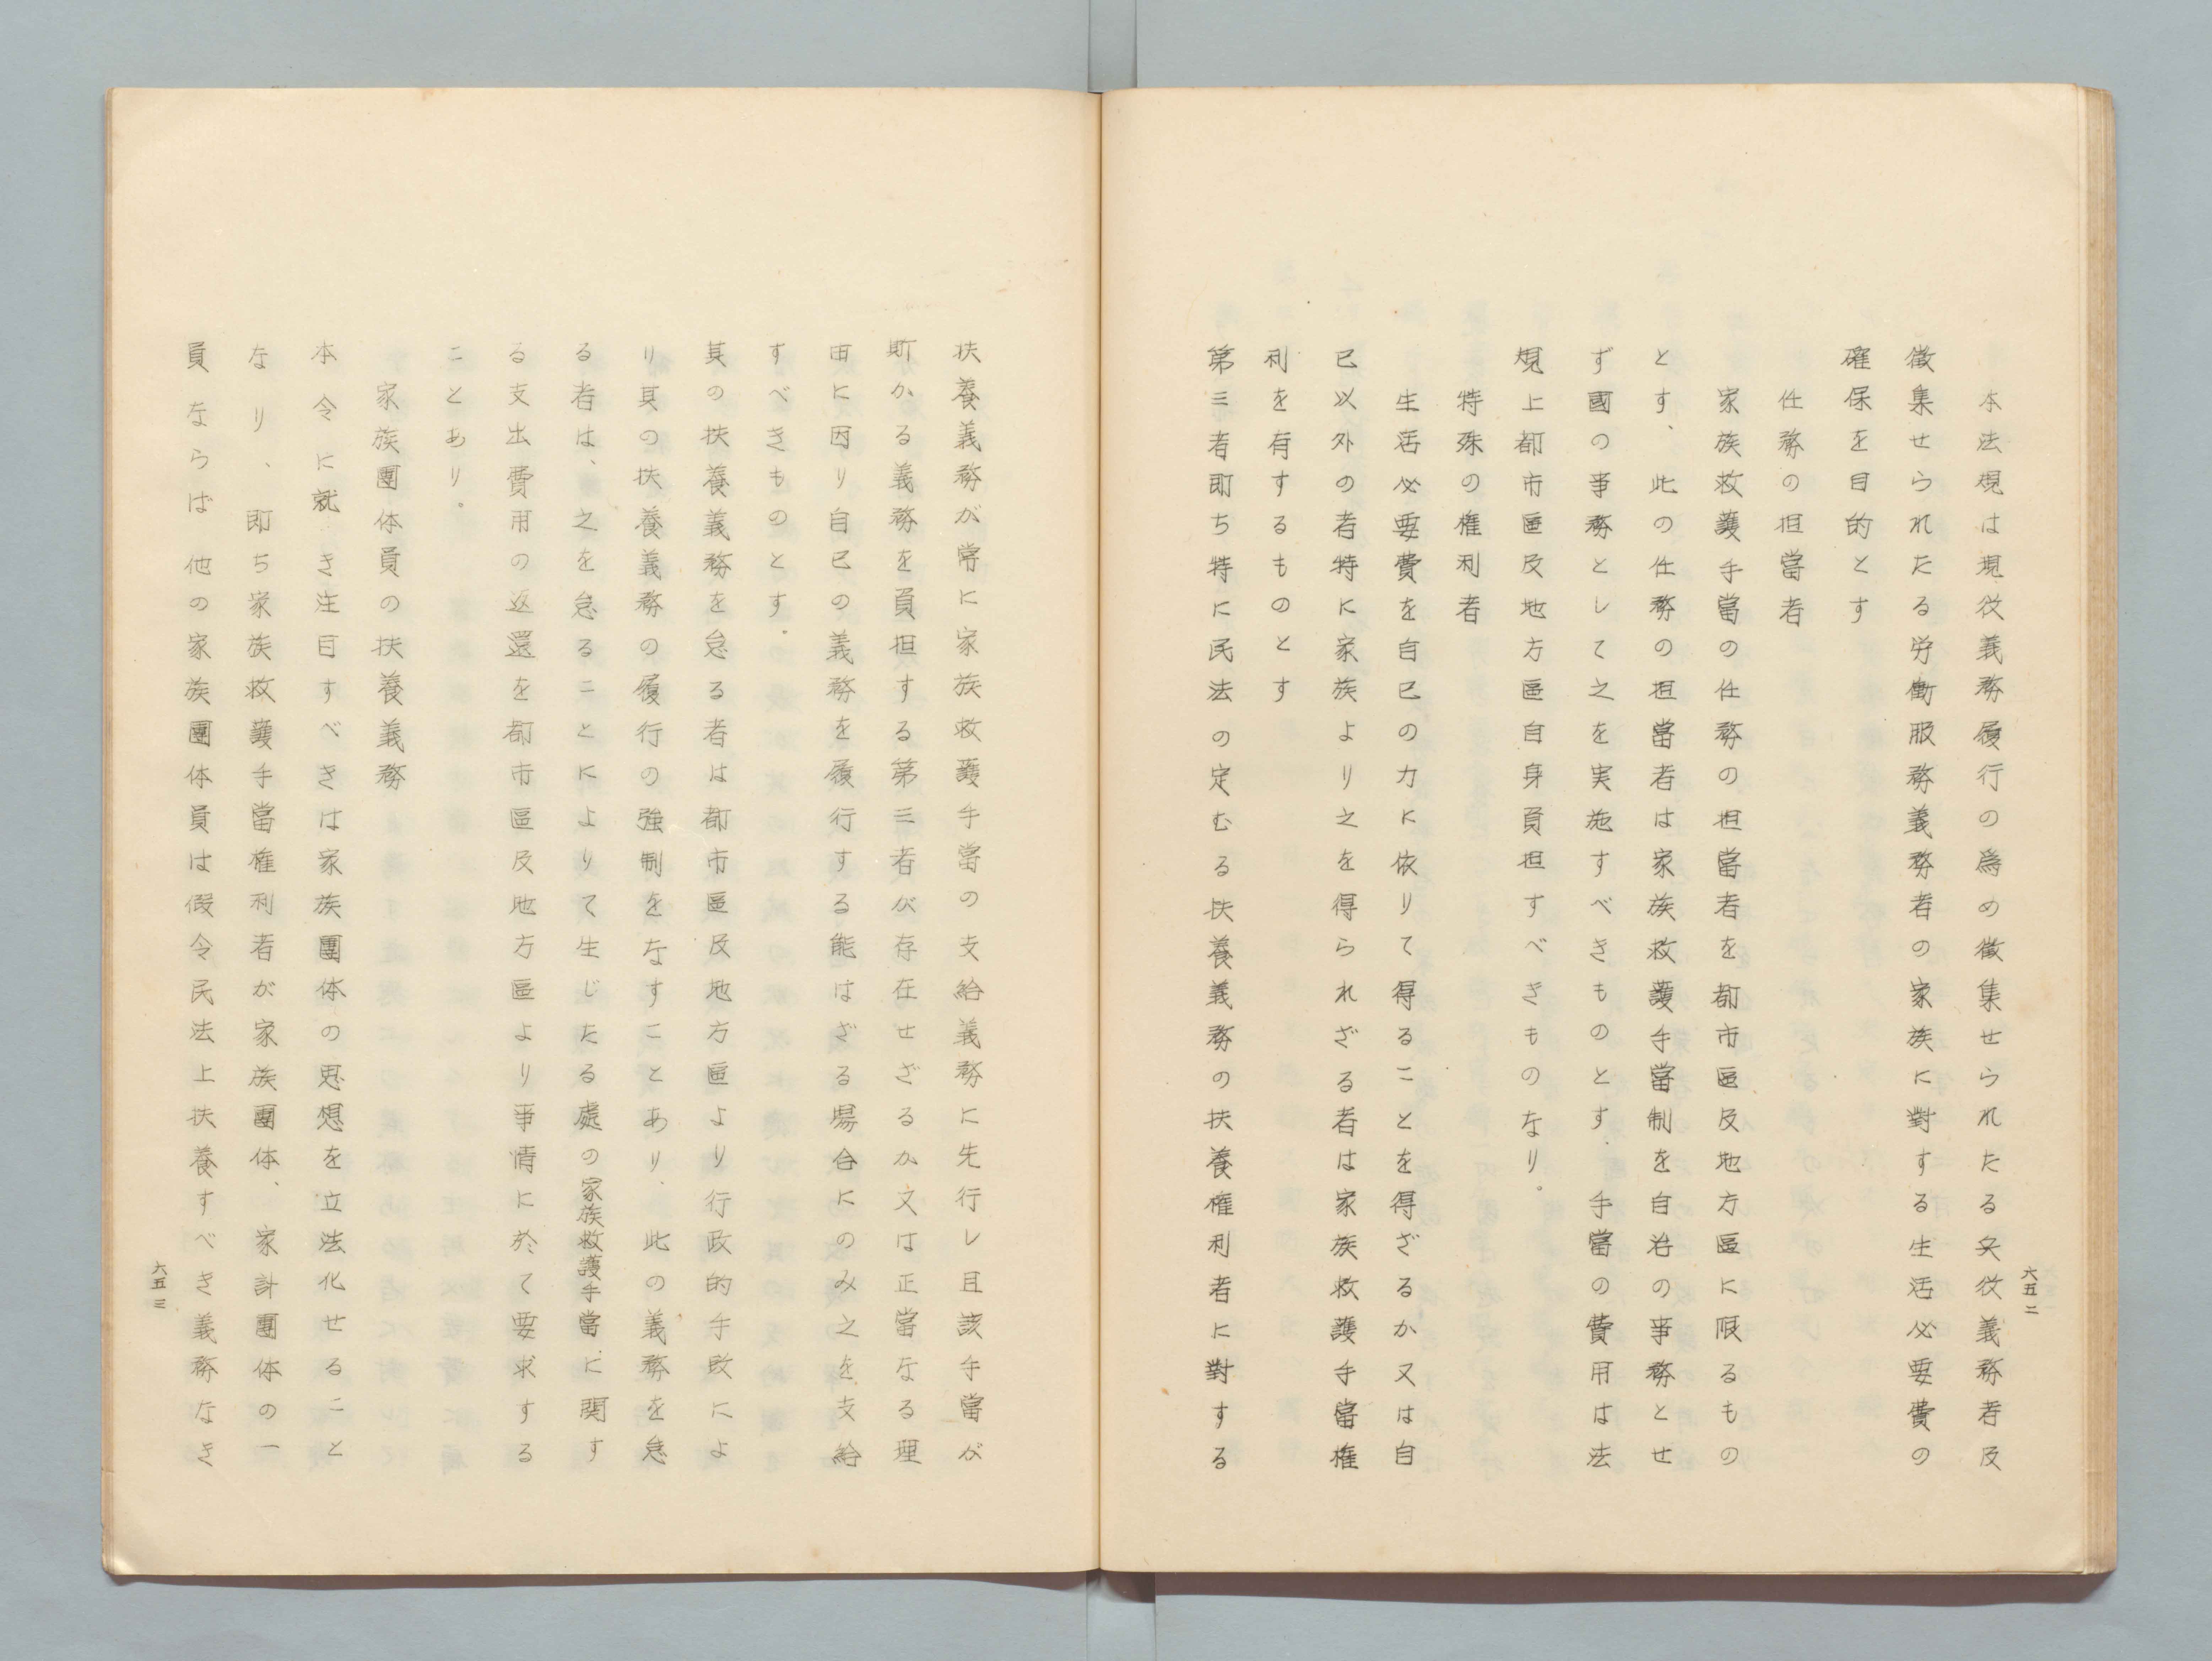 六五二
本法規は現役義務履行の為め徴集せられたる兵役義務者及
徴集せられたる労働服務義務者の家族に對する生活必要費の
確保を目的とす
任務の担當者
家族救護手當の任務の担當者を都市區及地方區に限るもの
とす、此の任務の担當者は家族救護手當制を自治の事務とせ
ず國の事務として之を実施すべきものとす．手當の費用は法
規上都市區及地方區自身負担すべきものなり。
特殊の権利者
生活必要費を自己の力に依りて得ることを得ざるか又は自
己以外の者特に家族より之を得られざる者は家族救護手當権
利を有するものとす
第三者即ち特に民法の定むる扶養義務の扶養権利者に對する
扶養義務が常に家族救護手當の支給義務に先行し且該手當が
斯かる義務を負担する第三者が存在せざるか又は正當なる理
由に因り自己の義務を履行する能はざる場合にのみ之を支給
すべきものとす．
其の扶養義務を怠る者は都市區及地方區より行政的手段によ
り其の扶養義務の履行の強制をなすことあり、此の義務を怠
る者は、之を怠ることによりて生じたる處の家族救護手當に関す
る支出費用の返還を都市區及地方區より事情に於て要求する
ことあり。
家族團体員の扶養義務
本令に就き注目すべきは家族團体の思想を立法化せること
なり、即ち家族救護手當権利者が家族團体、家計團体の一
員ならば他の家族團体員は假令民法上扶養すべき義務なき
六五三